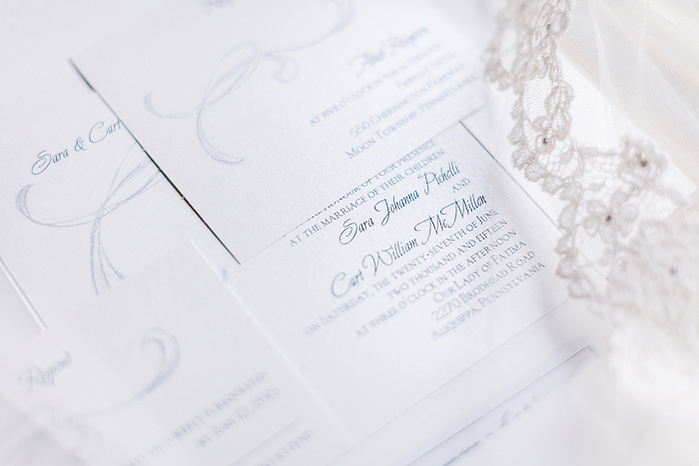 Sara & Curt
AT FIVE O'CLOCK IN THE
550 CHERRINGTON PARKWAY
MOON TOWNSHIP, PENNSYLVANIA
HONOUR OF YOUR PRESENCE
AT THE MARRIAGE OF THEIR CHILDREN
Sara Johanna Pichelli
AND
Curt William McMillen
ON SATURDAY, THE TWENTY-SEVENTH OF JUNE
TWO THOUSAND AND FIFTEEN
AT THREE O'CLOCK IN THE AFTERNOON
OUR LADY OF FATIMA
2270 BRODHEAD ROAD
ALIQUIPPA, PENNSYLVANIA
Respond
A REPLY IS REQUESTED
BY JUNE 12, 2015